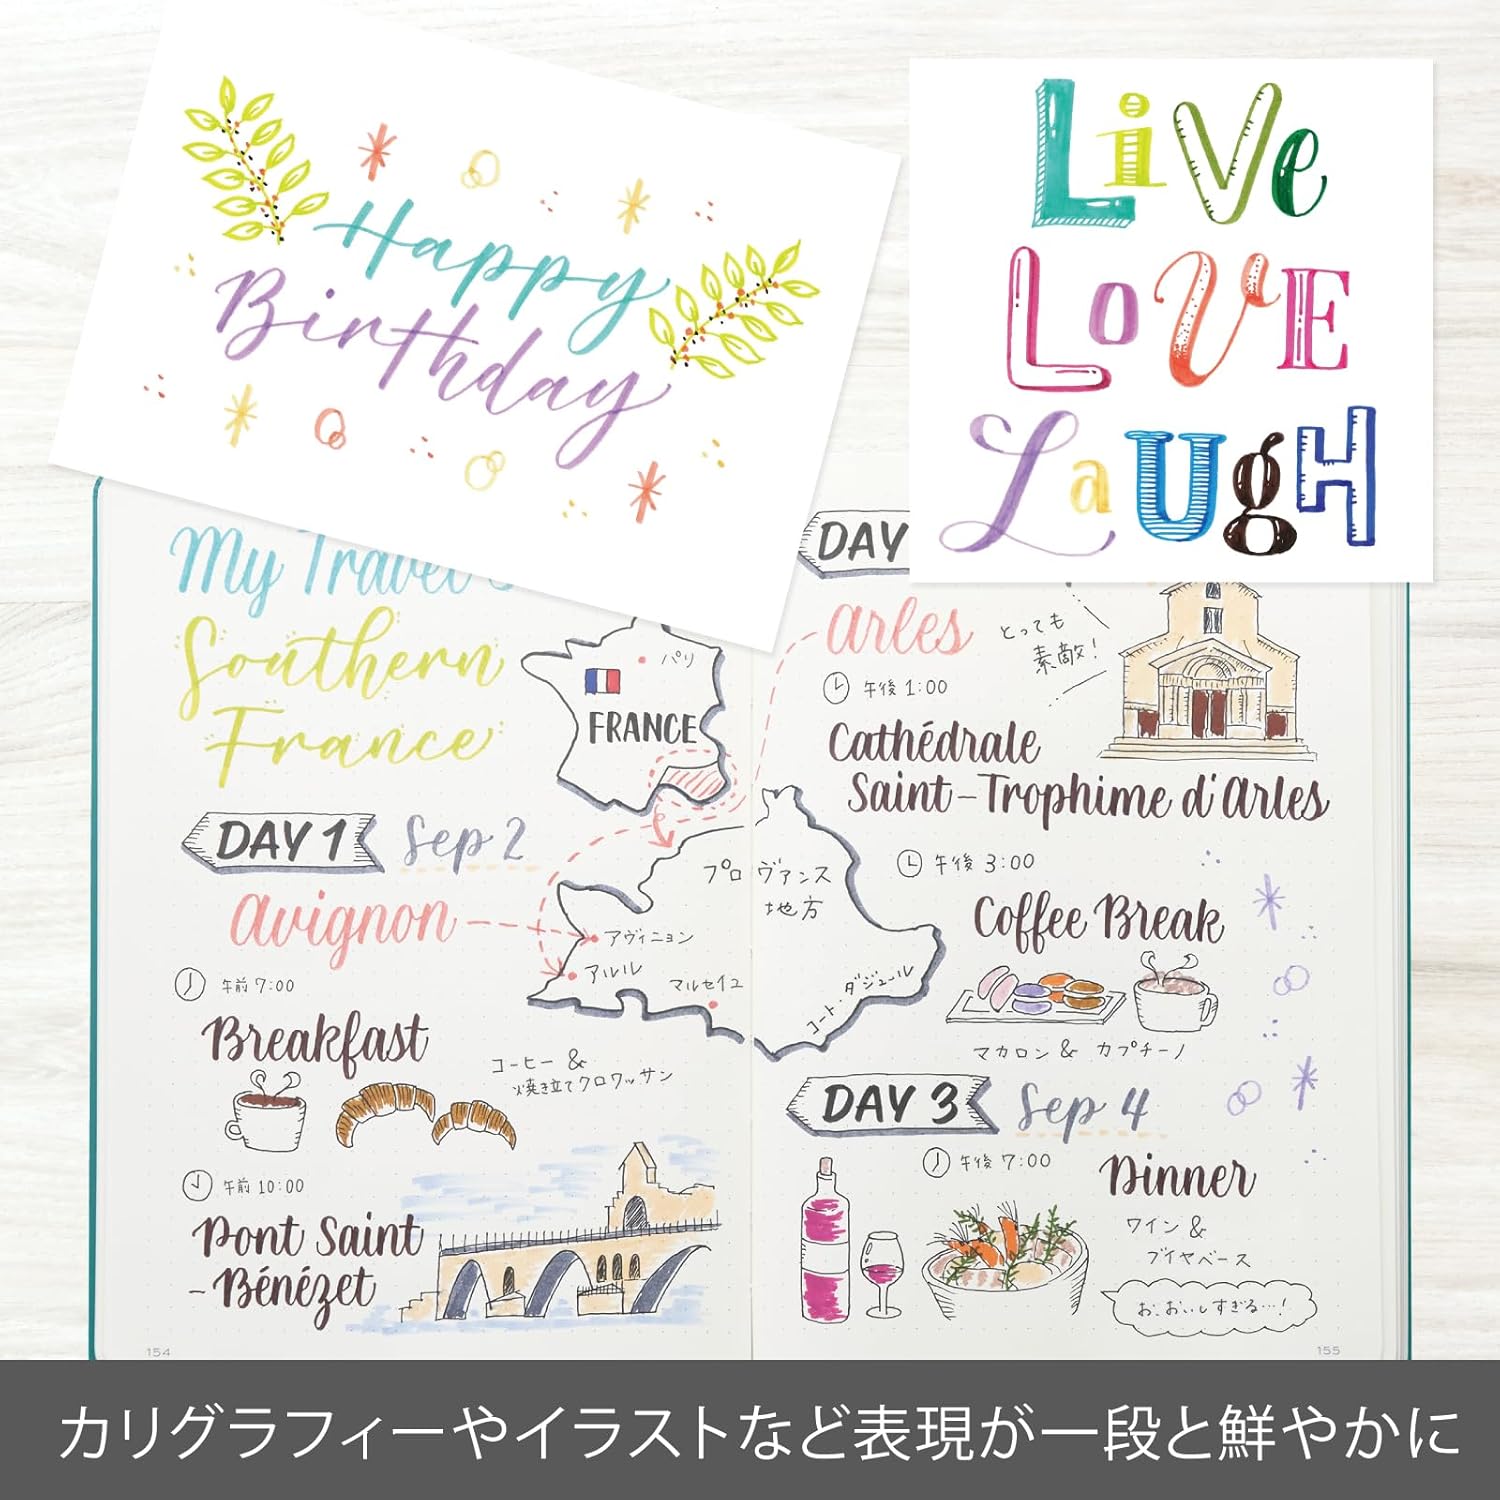 Happy
Birthday
Live
Love
Laugh
My Travel
Southern
France
パリ
FRANCE
DAY 1 Sep 2
avignon
午前 7:00
Breakfast
コーヒー &
焼き立てクロワッサン
午前 10:00
Pont Saint
-Bénézet
154
プロヴァンス
地方
アヴィニョン
アルル
マルセイユ
コート・ダジュール
DAY
arles
とっても
素敵!
午後 1:00
Cathédrale
Saint-Trophime d'arles
午後 3:00
Coffee Break
マカロン & カプチーノ
DAY 3 Sep 4
午後 7:00
Dinner
ワイン &
ブイヤベース
お、おいしすぎる…!
155
カリグラフィーやイラストなど表現が一段と鮮やかに